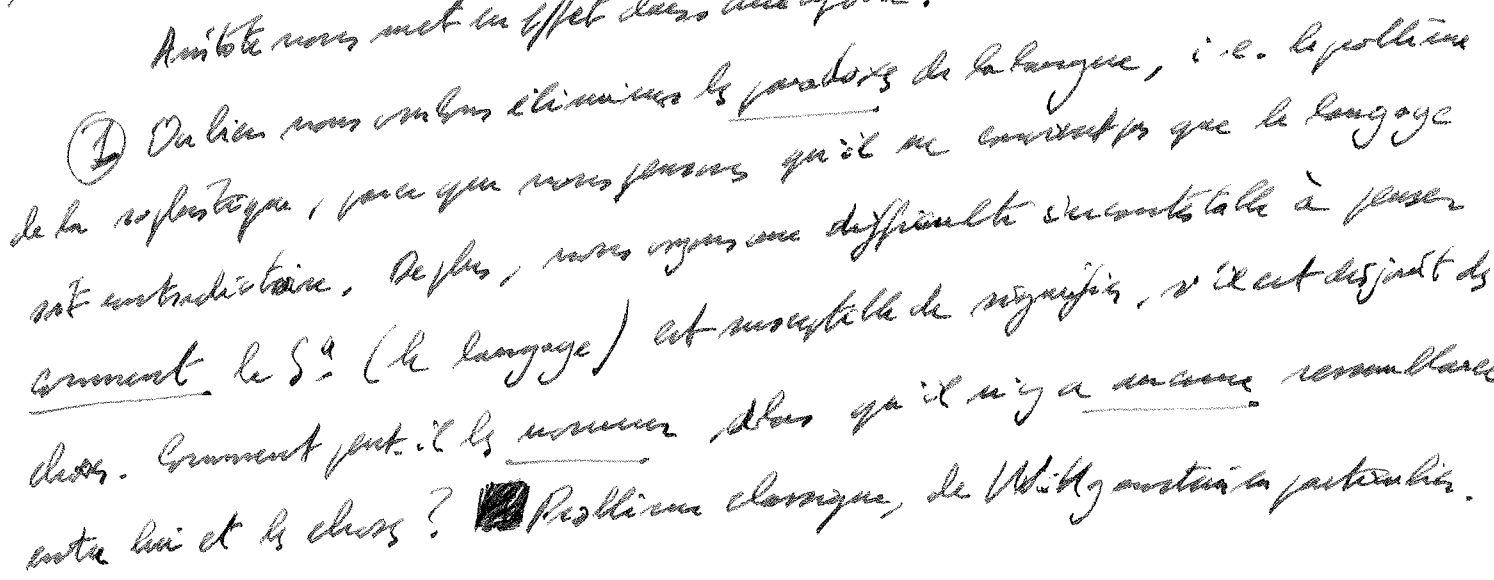 Aristote nous met en effet dans une
① Ou bien nous voulons éliminer les paradoxes de la langue, i.e. le problème
de la sophistique, parce que nous pensons qu'il ne convient pas que le langage
soit contradictoire. De plus, nous voyons une difficulté incontestable à penser
comment le Sª (le langage) est susceptible de signifier, s'il est disjoint des
choses. Comment peut-il les nommer alors qu'il n'y a aucune ressemblance
entre lui et les choses ? Problème classique, de Wittgenstein en particulier.